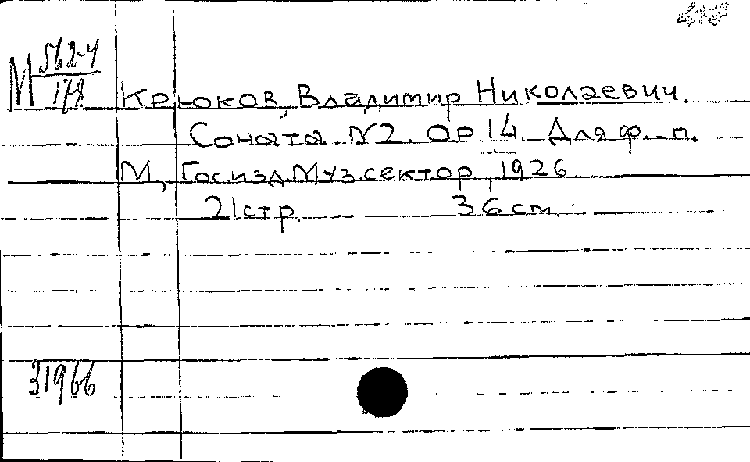 М 562-4
178
Крюков, Владимир Николаевич.
Соната №2. Op 14. Для ф.-п.
М, Госизд. Муз. сектор, 1926
21 стр. 36 см.
31966